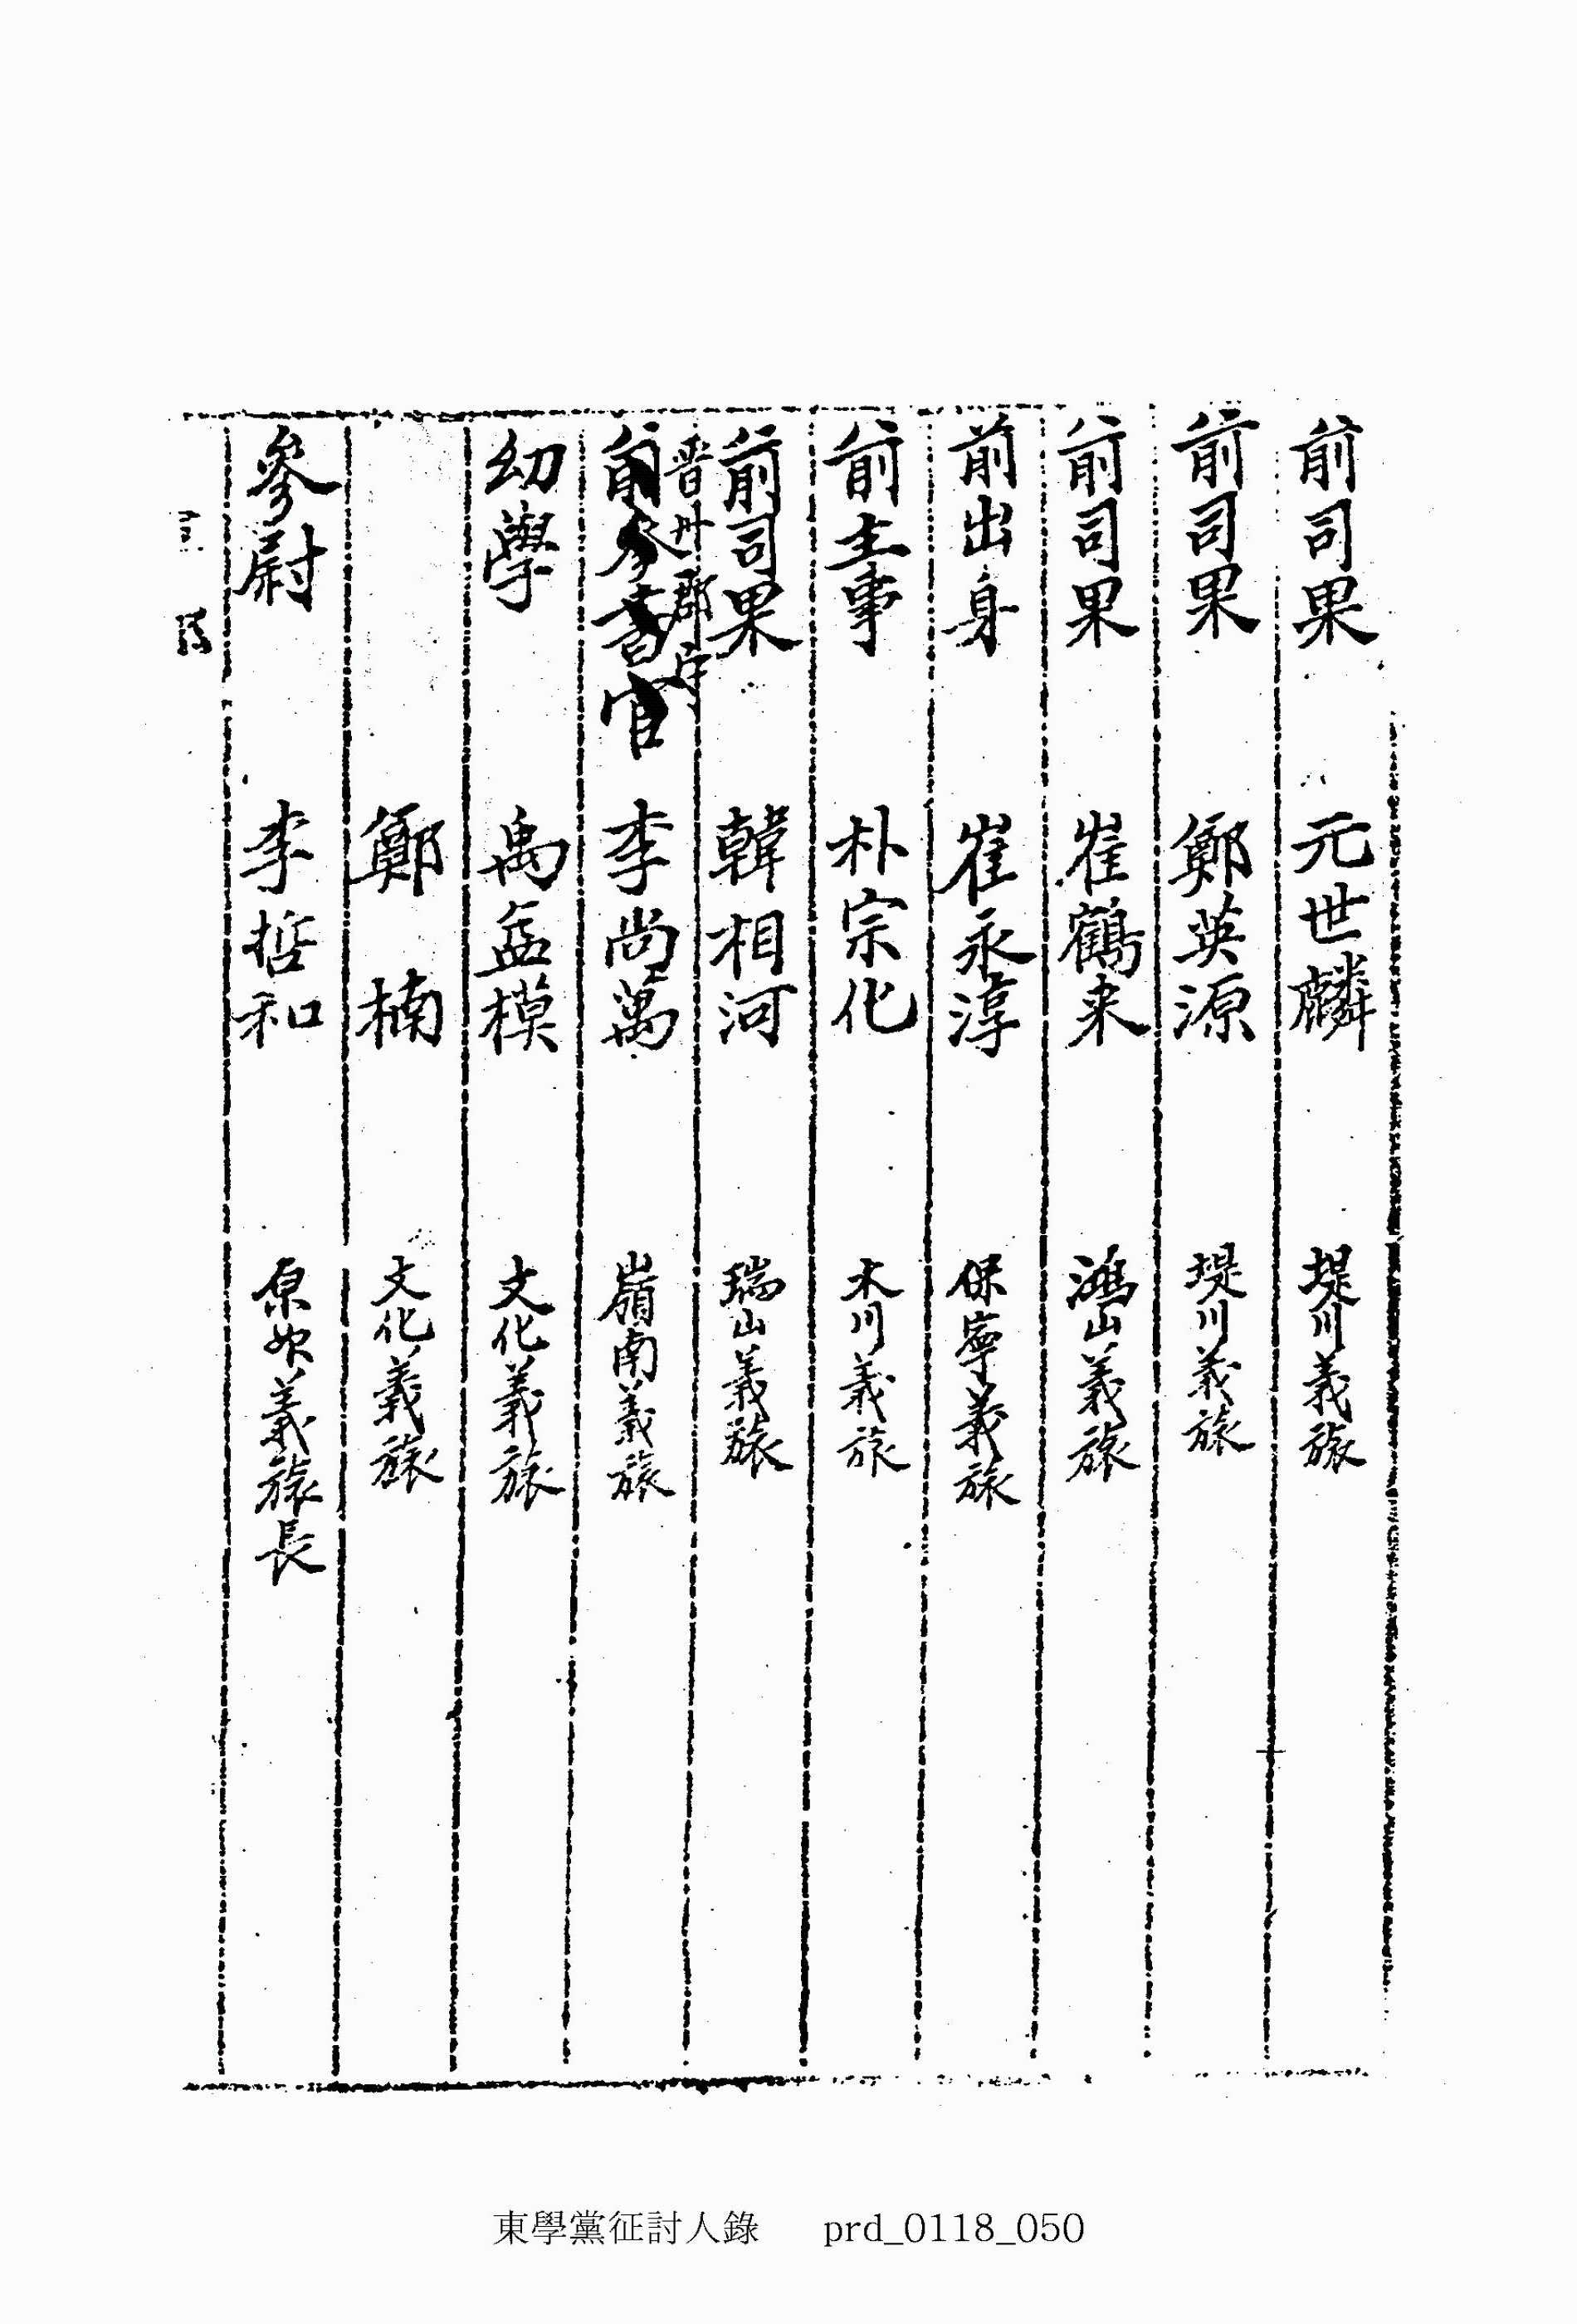 前司果 元世麟 堤川義旅
前司果 鄭英源 堤川義旅
前司果 崔鶴来 鴻山義旅
前出身 崔永淳 保寧義旅
前主事 朴宗化 木川義旅
前司果 韓相河 瑞山義旅
晋州郡守
前參書官 李尚萬 嶺南義旅
幼學 禹孟模 文化義旅
鄭楠 文化義旅
參尉 李哲和 原州義旅長
東學黨征討人錄 prd_0118_050